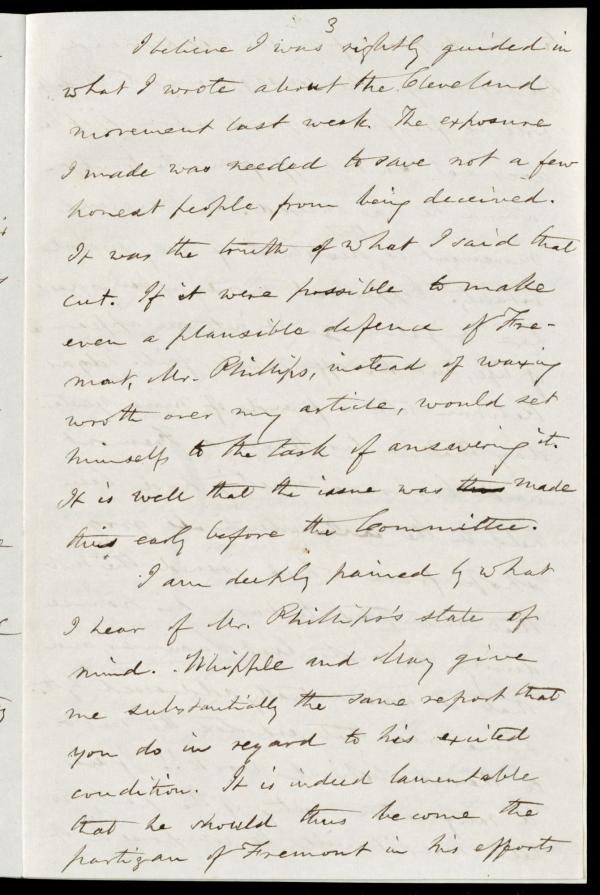 3
I believe I was rightly guided in
what I wrote about the Cleveland
movement last week. The exposure
I made was needed to save not a few
honest people from being deceived.
It was the truth of what I said that
cut. If it were possible to make
even a plausible defence of Fre-
mont, Mr. Phillips, instead of waxing
wroth over my article, would set
himself to the task of answering it.
It is well that the issue was thus made
thus early before the Committee.
I am deeply pained by what
I hear of Mr. Phillips's state of
mind. Whipple and May give
me substantially the same report that
you do in regard to his excited
condition. It is indeed lamentable
that he should thus become the
partizan of Fremont in his efforts